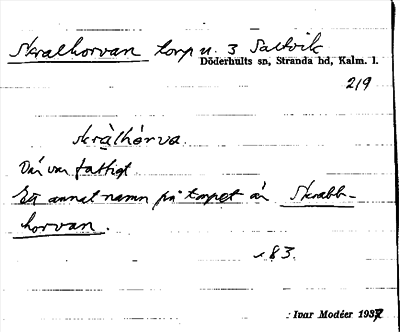 Skralhorvan torp u. 3 Saltvik
Döderhults sn, Stranda hd, Kalm. l.
219
skràlhórva.
Där var fattigt
Ett annat namn på torpet är Skrabb-
horvan.
s. 83.
: Ivar Modéer 1937